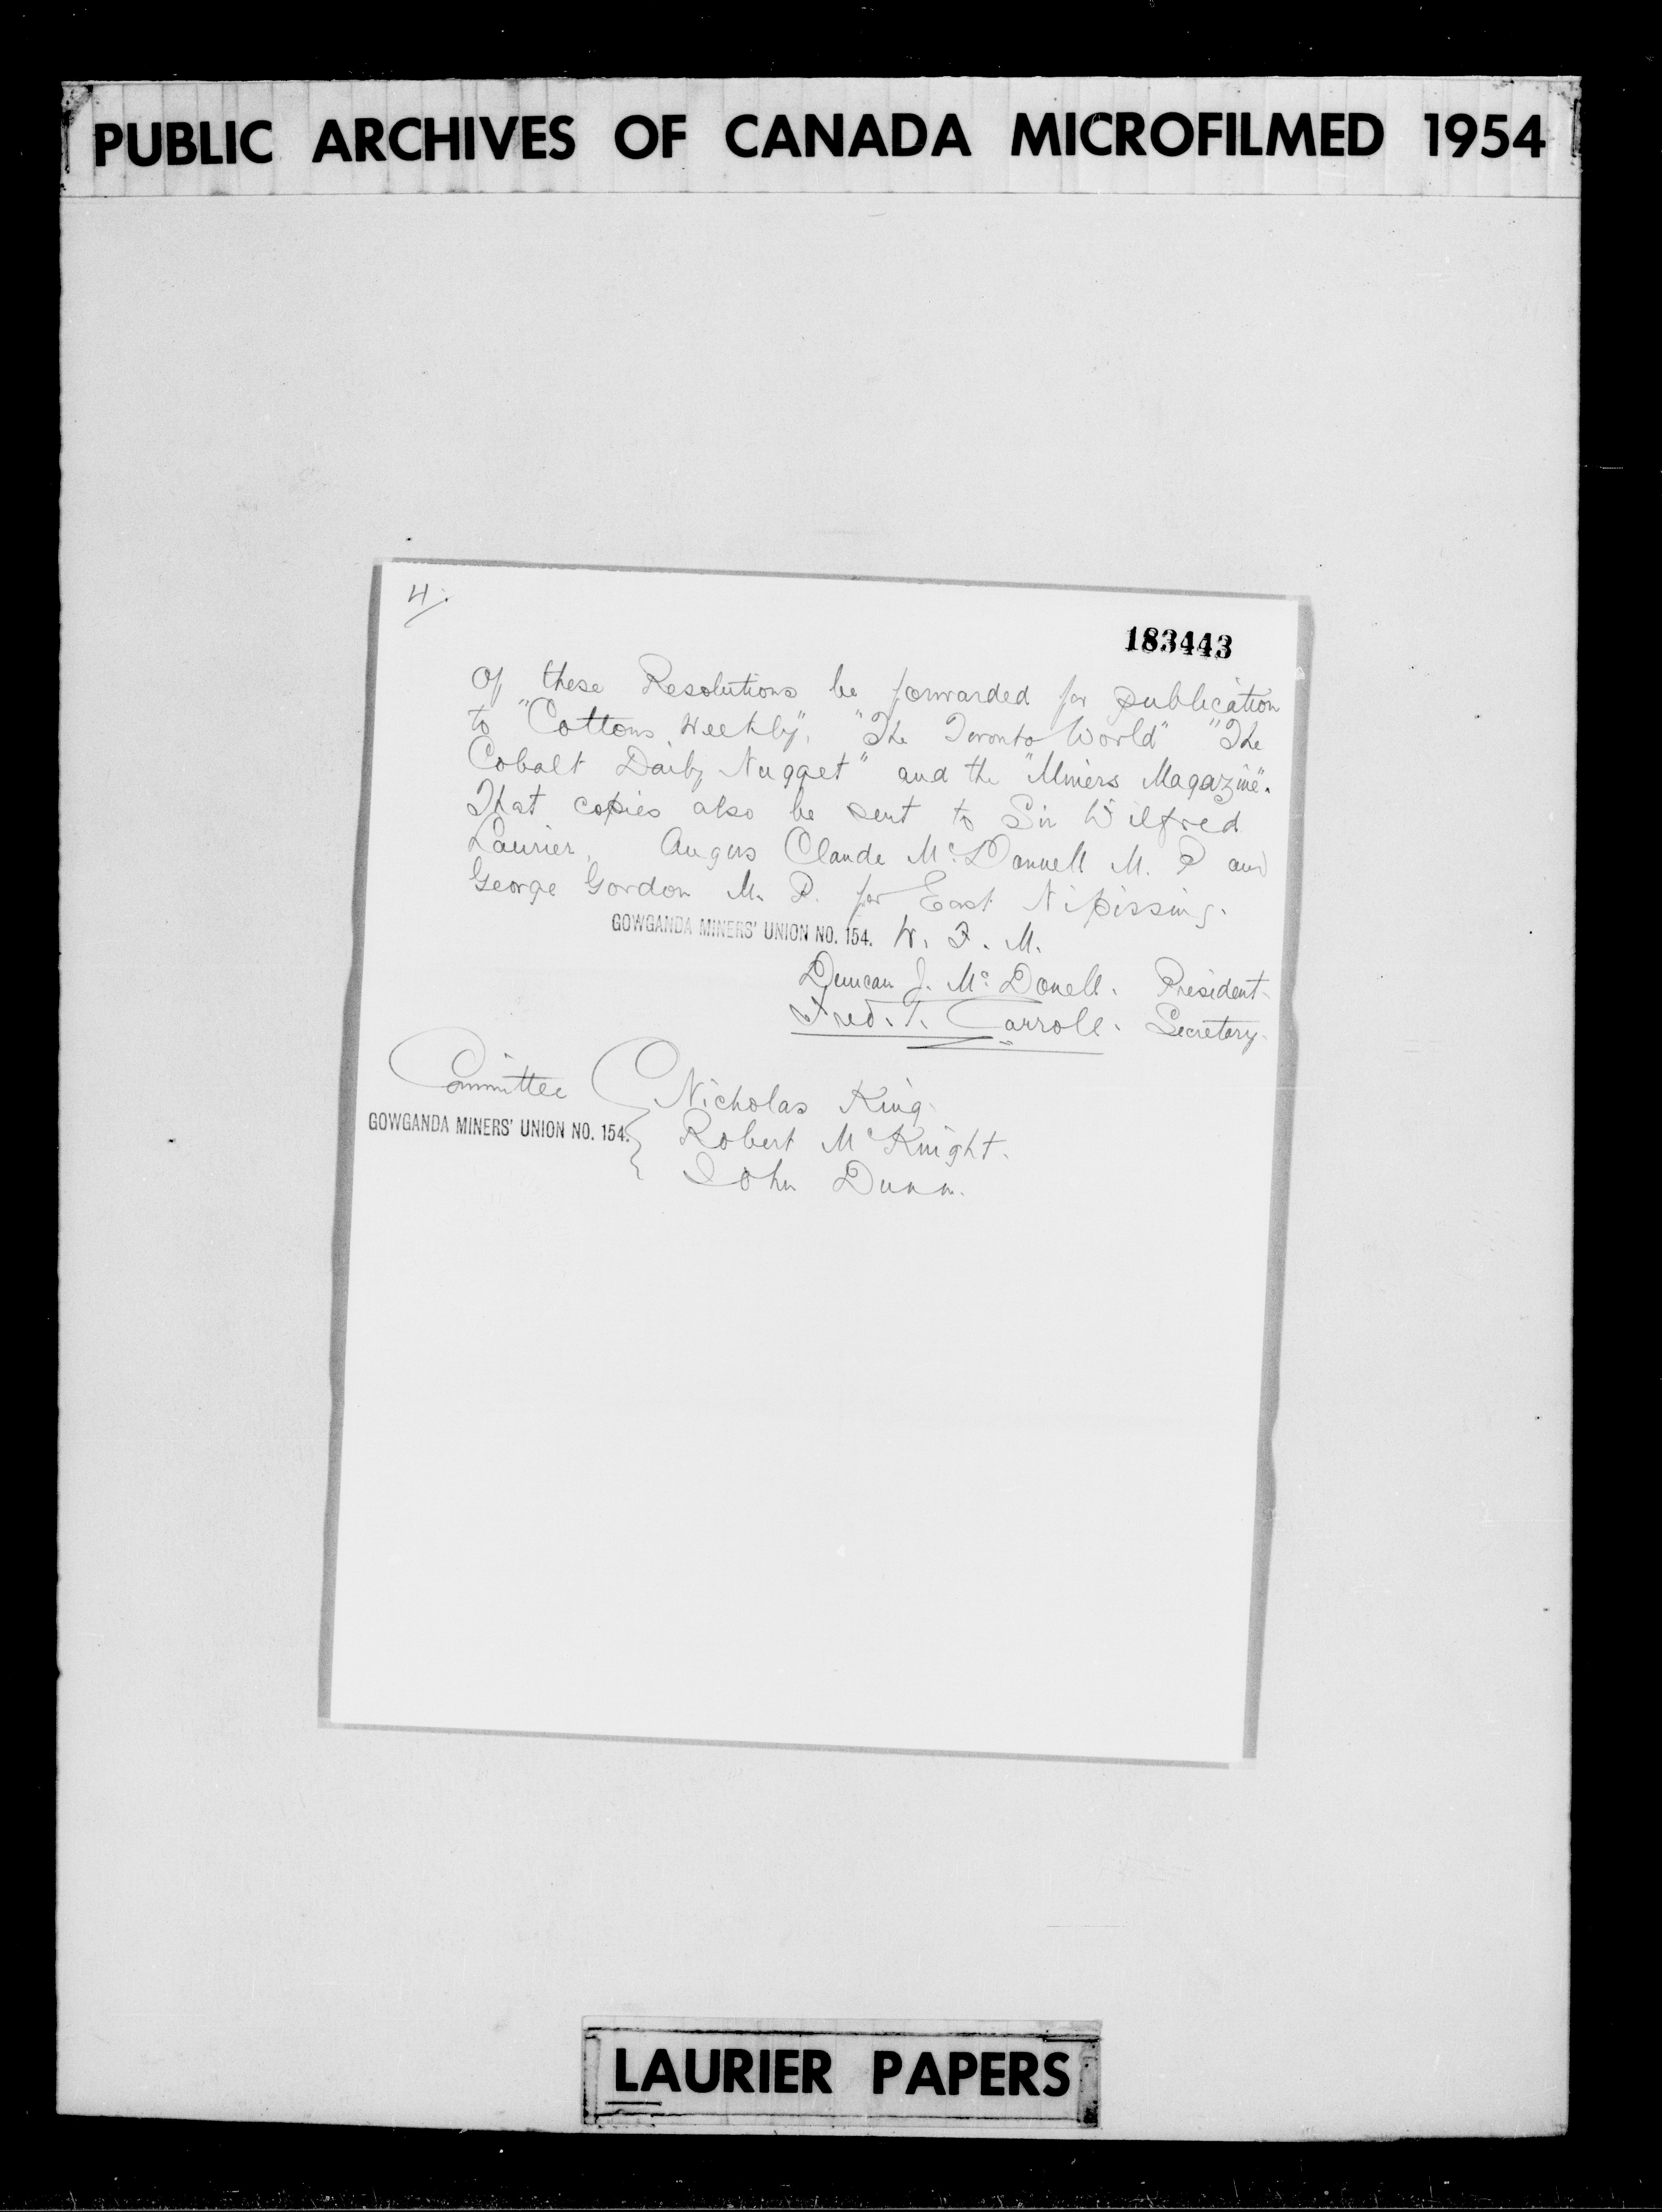 PUBLIC ARCHIVES OF CANADA MICROFILMED 1954
4.
183443
of these Resolutions be forwarded for publication
to "Cottons Weekly", "The Toronto World" "The
Cobalt Daily Nugget" and the "Miners Magazine".
That copies also be sent to Sir Wilfred
Laurier, Angus Claude McDonnell M. P and
George Gordon M. P. for East Nipissing.
GOWGANDA MINERS' UNION NO. 154. W. F. M.
Duncan J. McDonell. President.
Fred. T. Carroll. Secretary.
Committee Nicholas King.
GOWGANDA MINERS' UNION NO. 154. Robert McKnight.
John Dunn.
LAURIER PAPERS